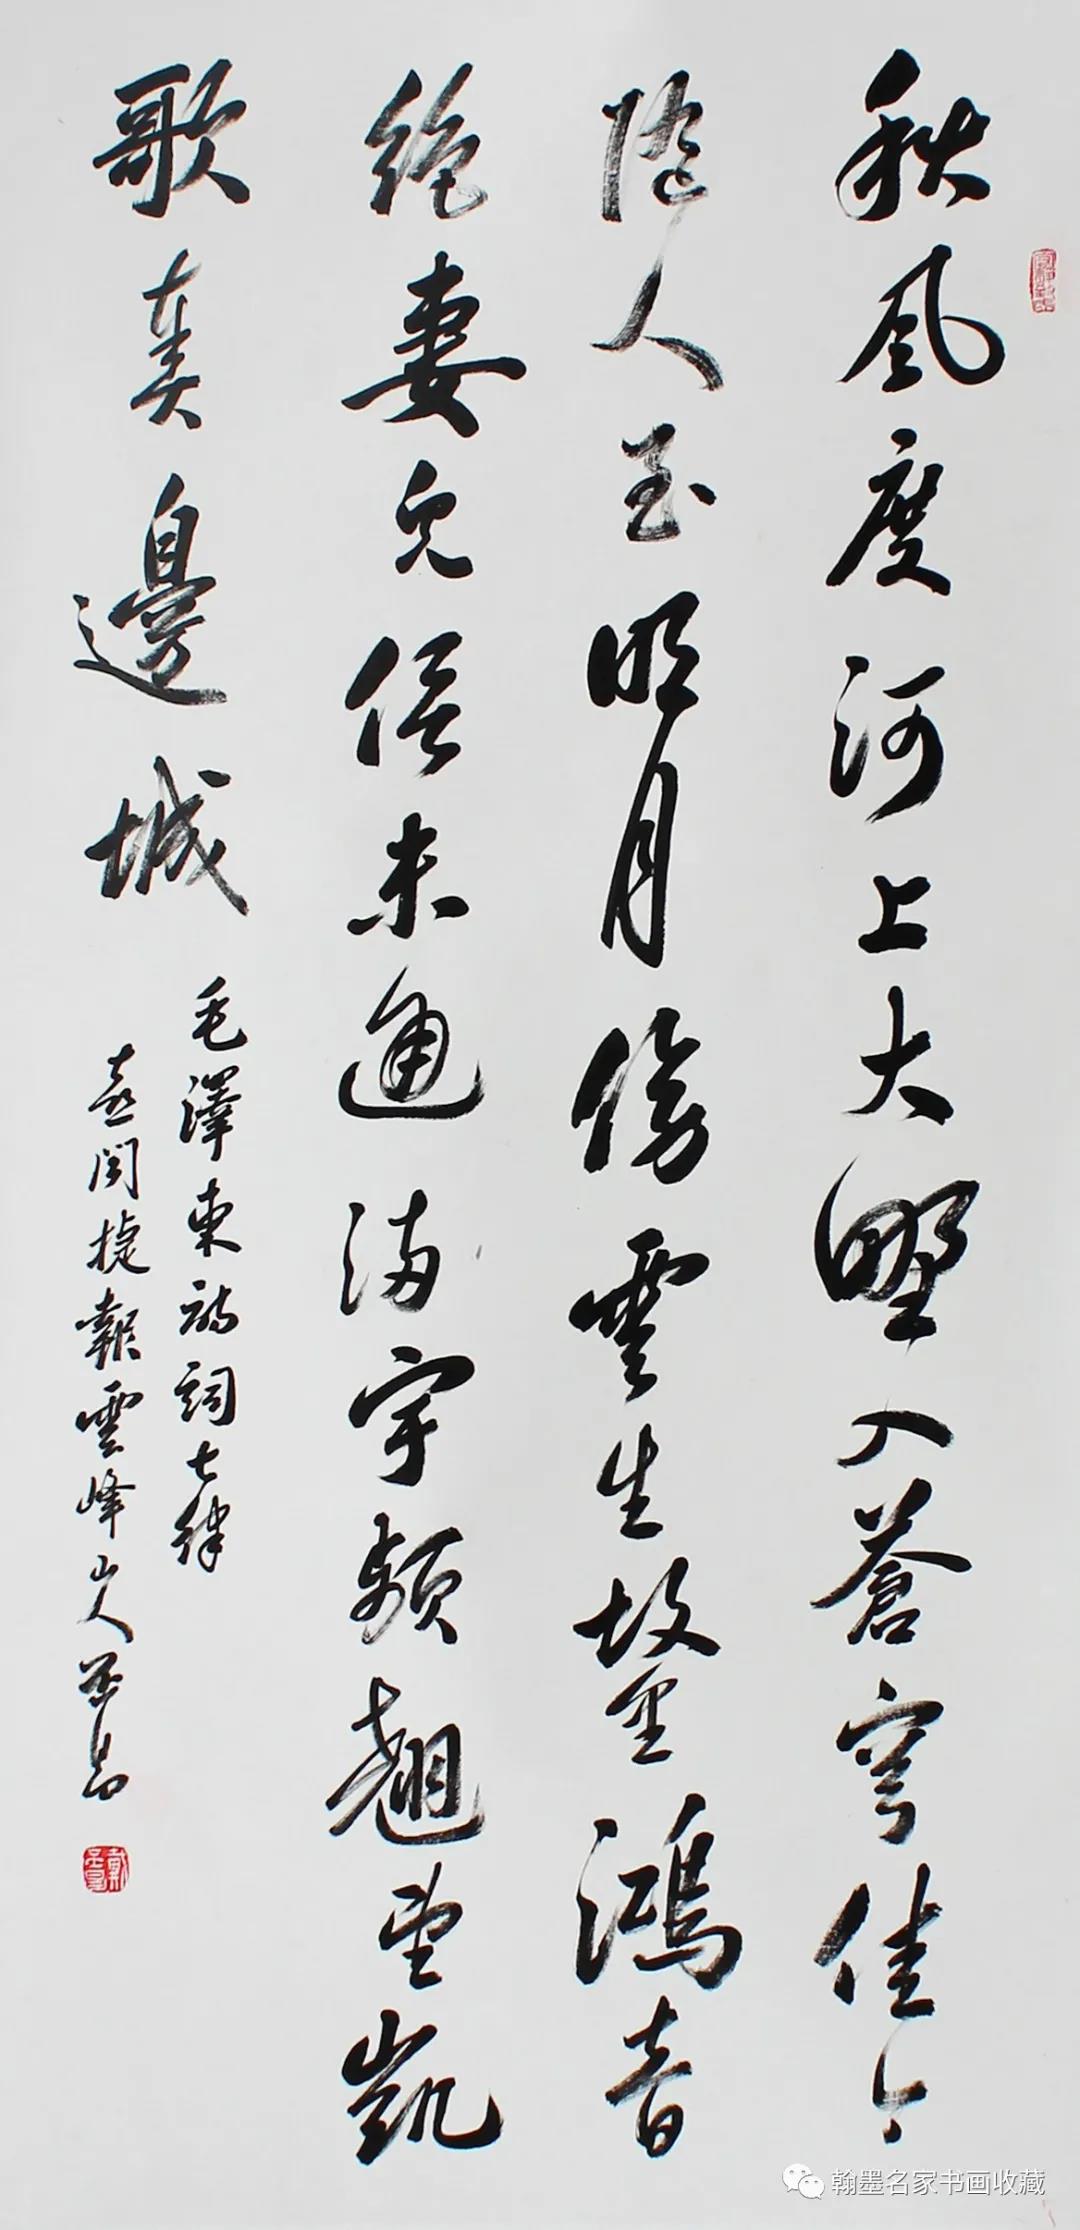 秋風度河上大野入蒼穹佳令
隨人至明月傍雲生故里鴻音
絕妻兒信未通滿宇頻翹望凱
歌奏邊城
毛澤東詩詞七律
喜聞捷報雲峰山人
翰墨名家书画收藏